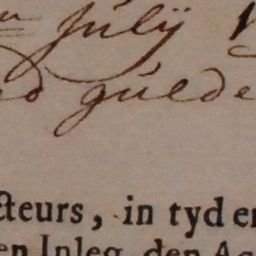 july
gulde
cteurs, in tyd en
en Inleg, den Ac